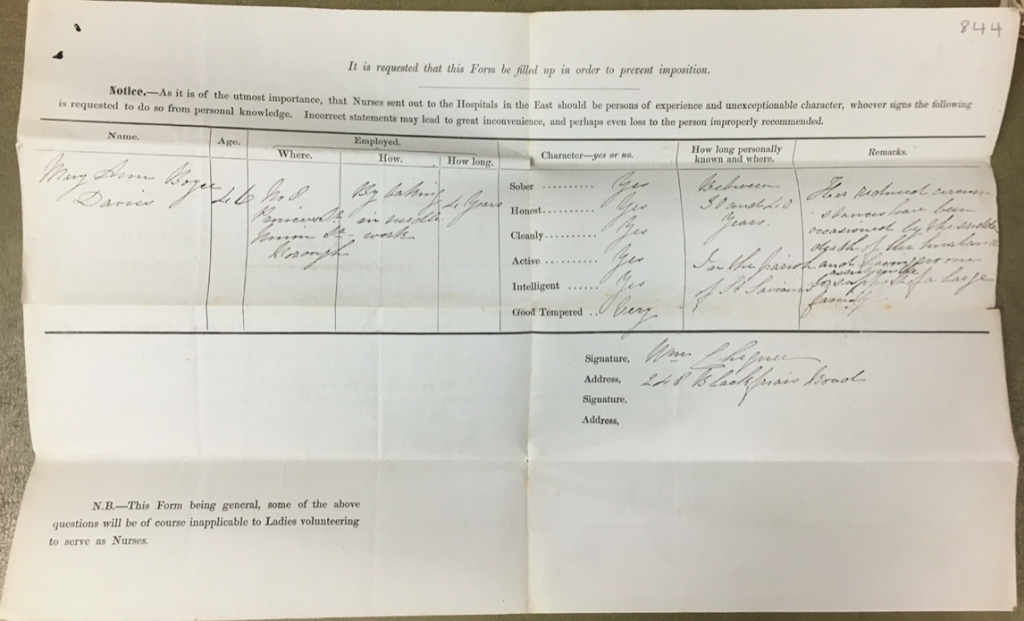 844
It is requested that this Form be filled up in order to prevent imposition.
Notice.—As it is of the utmost importance, that Nurses sent out to the Hospitals in the East should be persons of experience and unexceptionable character, whoever signs the following
is requested to do so from personal knowledge. Incorrect statements may lead to great inconvenience, and perhaps even loss to the person improperly recommended.
Name.
Age.
Employed.
Where.
How.
How long.
Character—yes or no.
How long personally
known and where.
Remarks.
Mary Ann
Davies
46
No 8
Union St
Borough
By taking
in needle
work
4 Years
Sober .......... Yes
Honest.......... Yes
Cleanly.......... Yes
Active .......... Yes
Intelligent ...... Yes
Good Tempered .. Very
Between
30 and 40
Years.
In the parish
of St Saviours
Her reduced circum
-stances have been
occasioned by the sudden
death of her husband
and having no one
to support a large
family.
Signature, Wm
Address, 248 Blackfriars Road
Signature,
Address,
N.B.—This Form being general, some of the above
questions will be of course inapplicable to Ladies volunteering
to serve as Nurses.